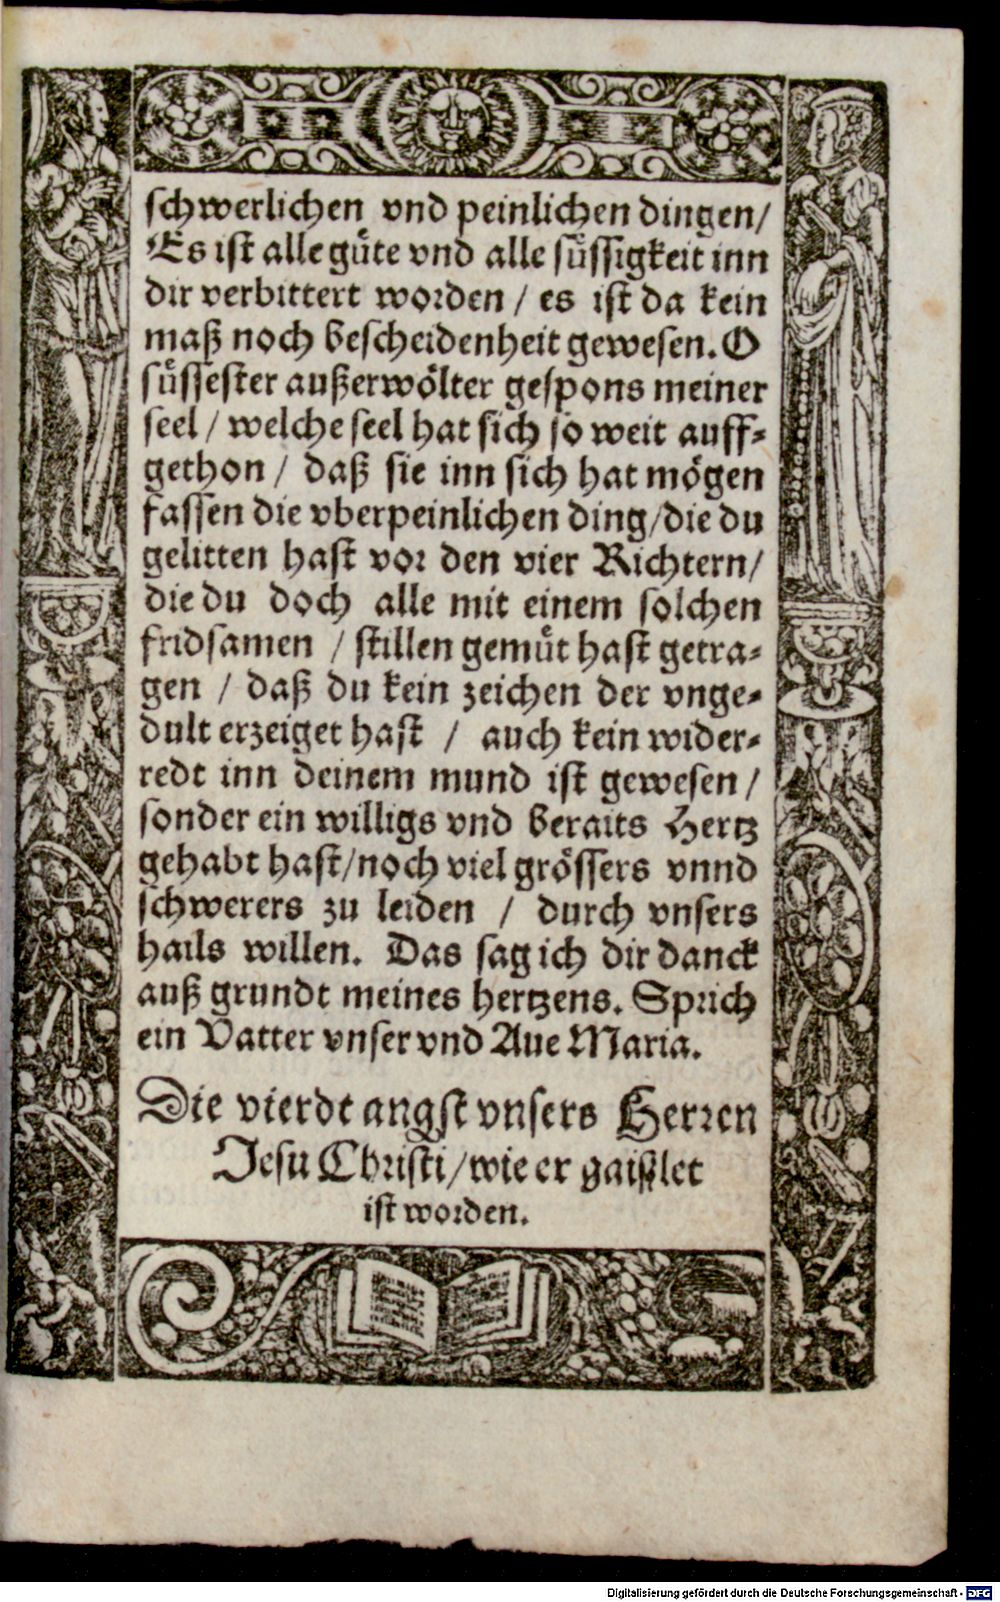 schwerlichen vnd peinlichen dingen/
Es ist alle guͤte vnd alle suͤssigkeit inn
dir verbittert worden / es ist da kein
maß noch bescheidenheit gewesen. O
suͤssester außerwoͤlter gespons meiner
seel / welche seel hat sich so weit auff-
gethon / daß sie inn sich hat moͤgen
fassen die vberpeinlichen ding/die du
gelitten hast vor den vier Richtern/
die du doch alle mit einem solchen
fridsamen / stillen gemuͤt hast getra-
gen / daß du kein zeichen der vnge-
dult erzeiget hast / auch kein wider-
redt inn deinem mund ist gewesen /
sonder ein willigs vnd beraits Hertz
gehabt hast/noch viel groͤssers vnnd
schwerers zu leiden / durch vnsers
hails willen. Das sag ich dir danck
auß grundt meines hertzens. Sprich
ein Vatter vnser vnd Aue Maria.
Die vierdt angst vnsers Herren
Jesu Christi/wie er gaißlet
ist worden.
Digitalisierung gefördert durch die Deutsche Forschungsgemeinschaft - DFG